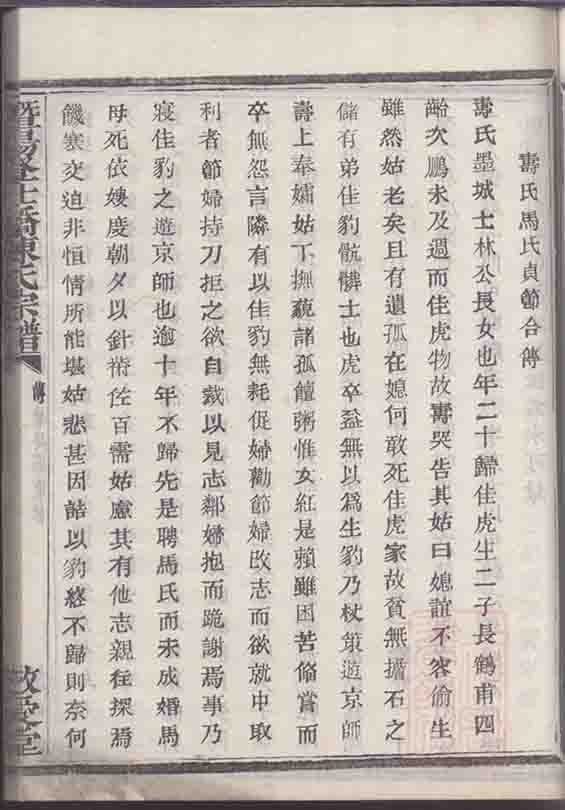 壽氏馬氏貞節合傳
壽氏墨城士林公長女也年二十歸佳虎生二子長鶴甫四
齡次鵬未及週而佳虎物故壽哭告其姑曰媳誼不容偷生
雖然姑老矣且有遺孤在媳何敢死佳虎家故貧無擔石之
儲有弟佳豹骯髒士也虎卒益無以爲生豹乃杖策遊京師
壽上奉孀姑下撫藐諸孤饘粥惟女紅是賴雖困苦偹嘗而
卒無怨言隣有以佳豹無耗促婦勸節婦改志而欲就中取
利者節婦持刀拒之欲自裁以見志鄰婦抱而跪謝焉事乃
寢佳豹之遊京師也逾十年不歸先是聘馬氏而未成婚馬
母死依嫂度朝夕以針黹佐百需姑慮其有他志親徃探焉
饑寒交迫非恒情所能堪姑悲甚因詰以豹終不歸則奈何
暨陽
橋陳氏宗譜
傳
敬愛堂